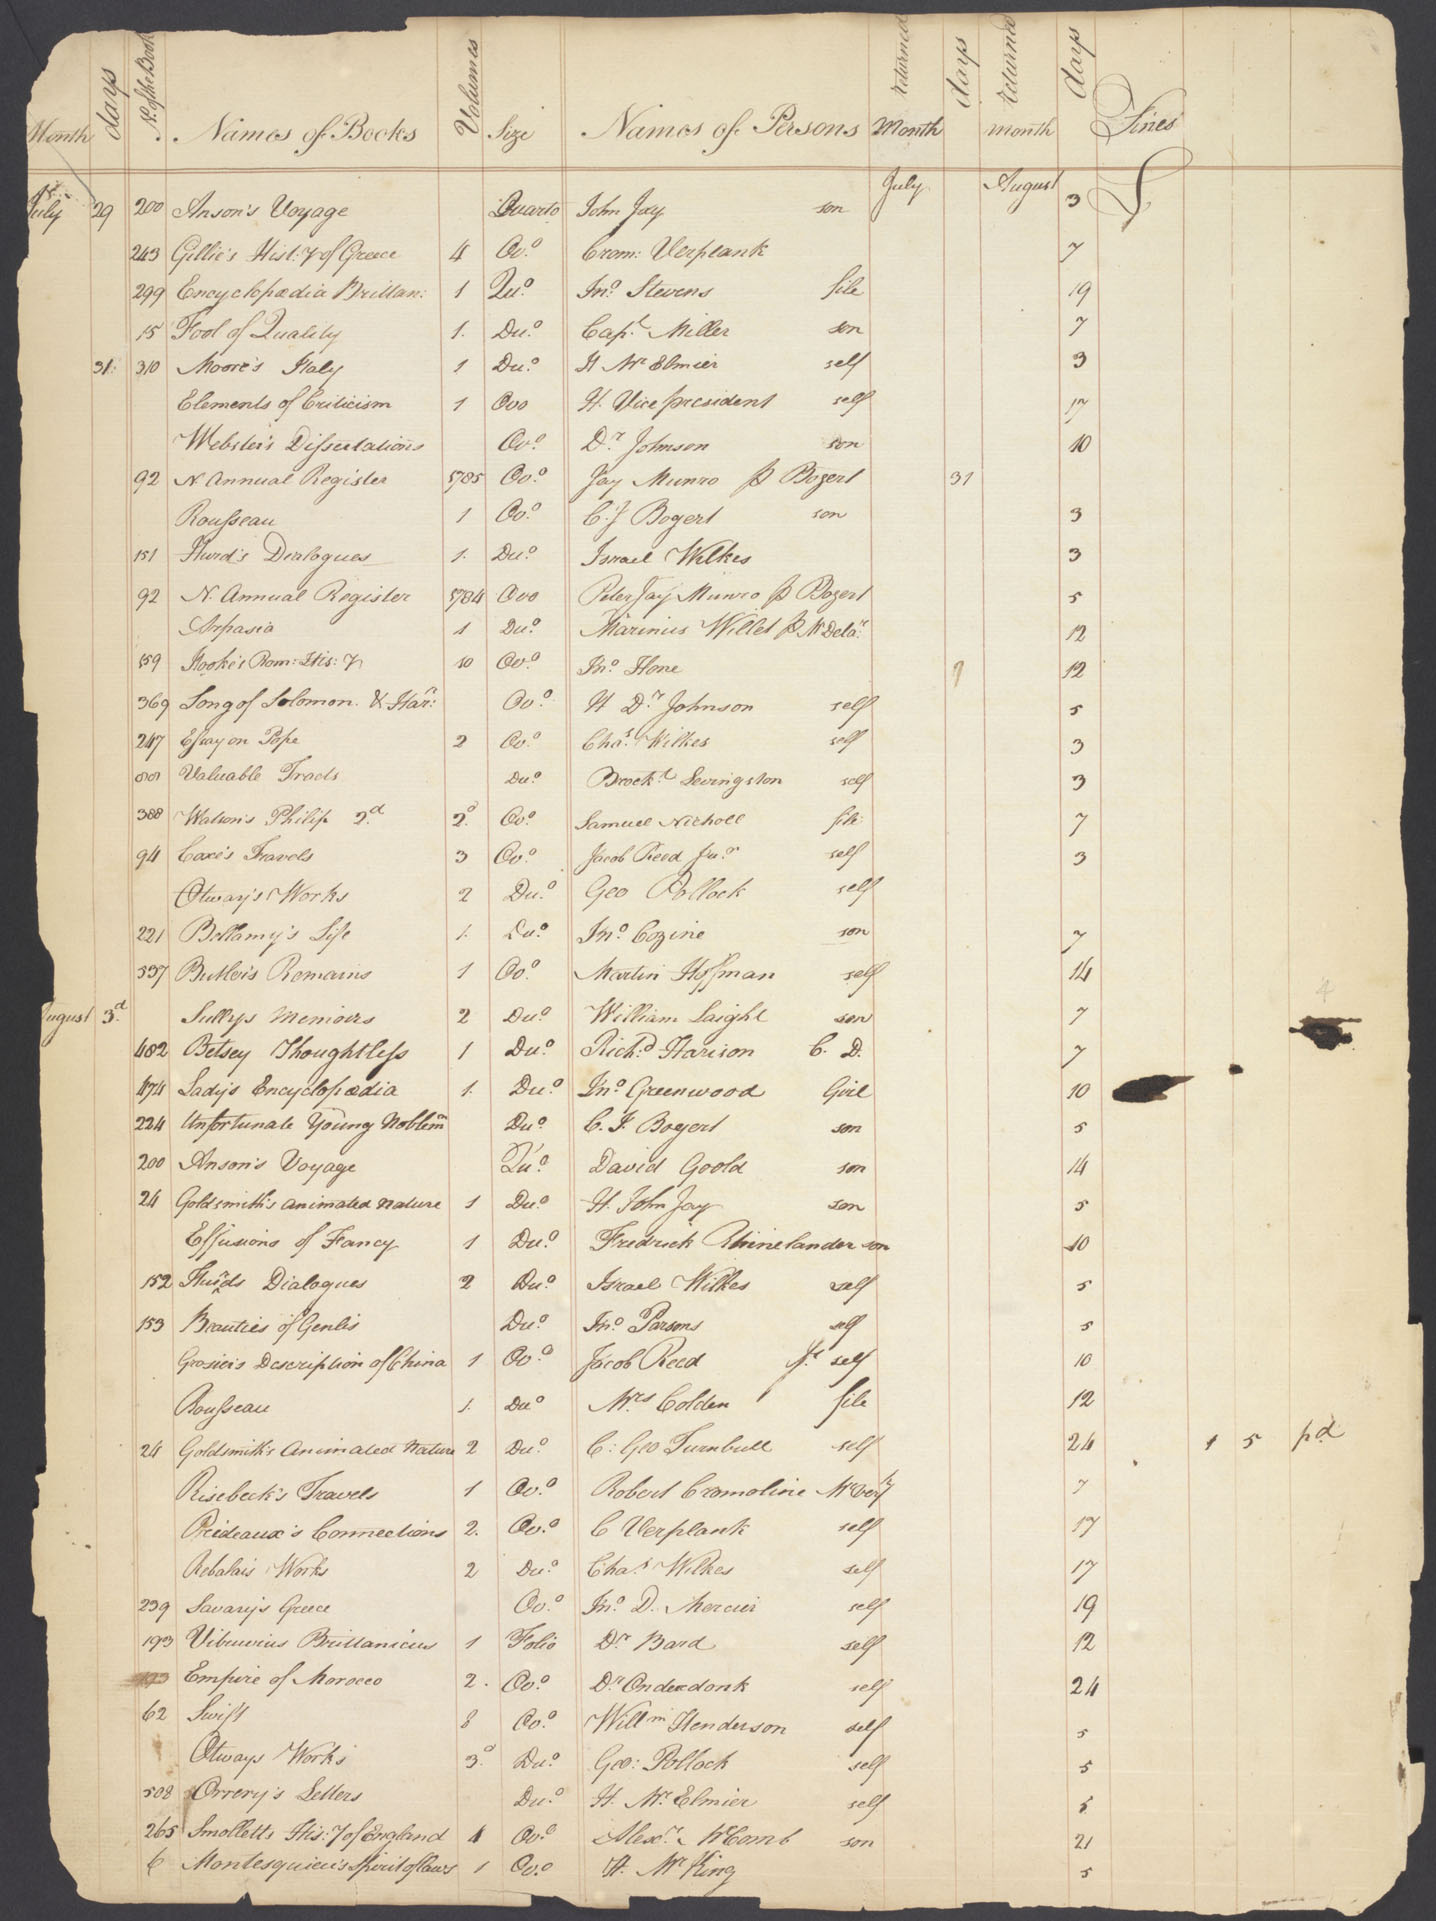 Month days No. of the Book Names of Books Volumes Size Names of Persons returned Month days returned month days Fines
July August
July 29 200 Anson's Voyage Quarto John Jay son 3
243 Gillie's Hist:y of Greece 4 Ov.o Crom: Verplank 7
299 Encyclopædia Brittan: 1 Qu.o Jn.o Stevens file 19
15 Fool of Quality 1. Du.o Cap.t Miller son 7
31 310 Moore's Italy 1 Du.o H Mr Elmier self 3
Elements of Criticism 1 Ovo H. Vice president self 17
Webster's Dissertations Ov.o D.r Johnson son 10
92 N Annual Register 1785 Ov.o Jay Munro p Bogert 31
Rousseau 1 Ov.o C.J Bogert son 3
151 Hurd's Dialogues 1. Du.o Israel Wilkes 3
92 N. Annual Register 1784 Ovo Peter Jay Munro p Bogert 5
Aspasia 1 Du.o Marinus Willet p Mr Dela.r 12
159 Hooke's Rom: His: y 10 Ov.o Jn.o Hone 12
369 Song of Solomon & Har: Ov.o H D.r Johnson self 5
247 Essay on Pope 2 Ov.o Cha.s Wilkes self 3
Valuable Tracts Du.o Brock.t Levingston self 3
388 Watson's Philip 2.d 2.d Ov.o Samuel Nicholl file 7
94 Coxe's Travels 3 Ov.o Jacob Reed Ju.r self 3
Otway's Works 2 Du.o Geo Pollock self
221 Bellamy's Life 1. Du.o Jn.o Cozine son 7
537 Butler's Remains 1 Ov.o Martin Hoffman self 14
August 3.d Sullys Memoirs 2 Du.o William Laight son 7
482 Betsey Thoughtless 1 Du.o Rich.d Harison C. D. 7
474 Lady's Encyclopædia 1. Du.o Jn.o Greenwood Girl 10
224 Unfortunate Young Noblem Du.o C. J. Bogert son 5
200 Anson's Voyage Qu.o David Goold son 14
24 Goldsmith's animated nature 1 Du.o H. John Jay son 5
Effusions of Fancy 1 Du.o Fredrick Rhinelander son 10
152 Hurds Dialogues 2 Du.o Israel Wilkes self 5
153 Beauties of Genlis Du.o Jn.o Parsons self 5
Grosier's Description of China 1 Ov.o Jacob Reed self 10
Rousseau 1. Du.o Mrs Colden file 12
24 Goldsmith's animated Nature 2 Du.o C: Geo Turnbull self 24 1 5 pd
Risebeck's Travels 1 Ov.o Robert Cromoline 7
Prideaux's Connections 2. Ov.o C Verplank self 17
Rebalais Works 2 Du.o Cha.s Wilkes self 17
239 Savary's Greece Ov.o Jn.o D. Mercier self 19
193 Vitruvius Brittanicus 1 Folio D.r Bard self 12
Empire of Morocco 2. Ov.o D.r Onderdonk self 24
62 Swift 8 Ov.o Will.m Henderson self 5
Otways Works 3.d Du.o Geo: Pollock self 5
508 Orrery's Letters Du.o H. Mr. Elmier self 5
265 Smolletts His:y of England 4 Ov.o Alex.r McComb son 21
6 Montesquieu's spirit of laws 1 Ov.o H. Mr King 5